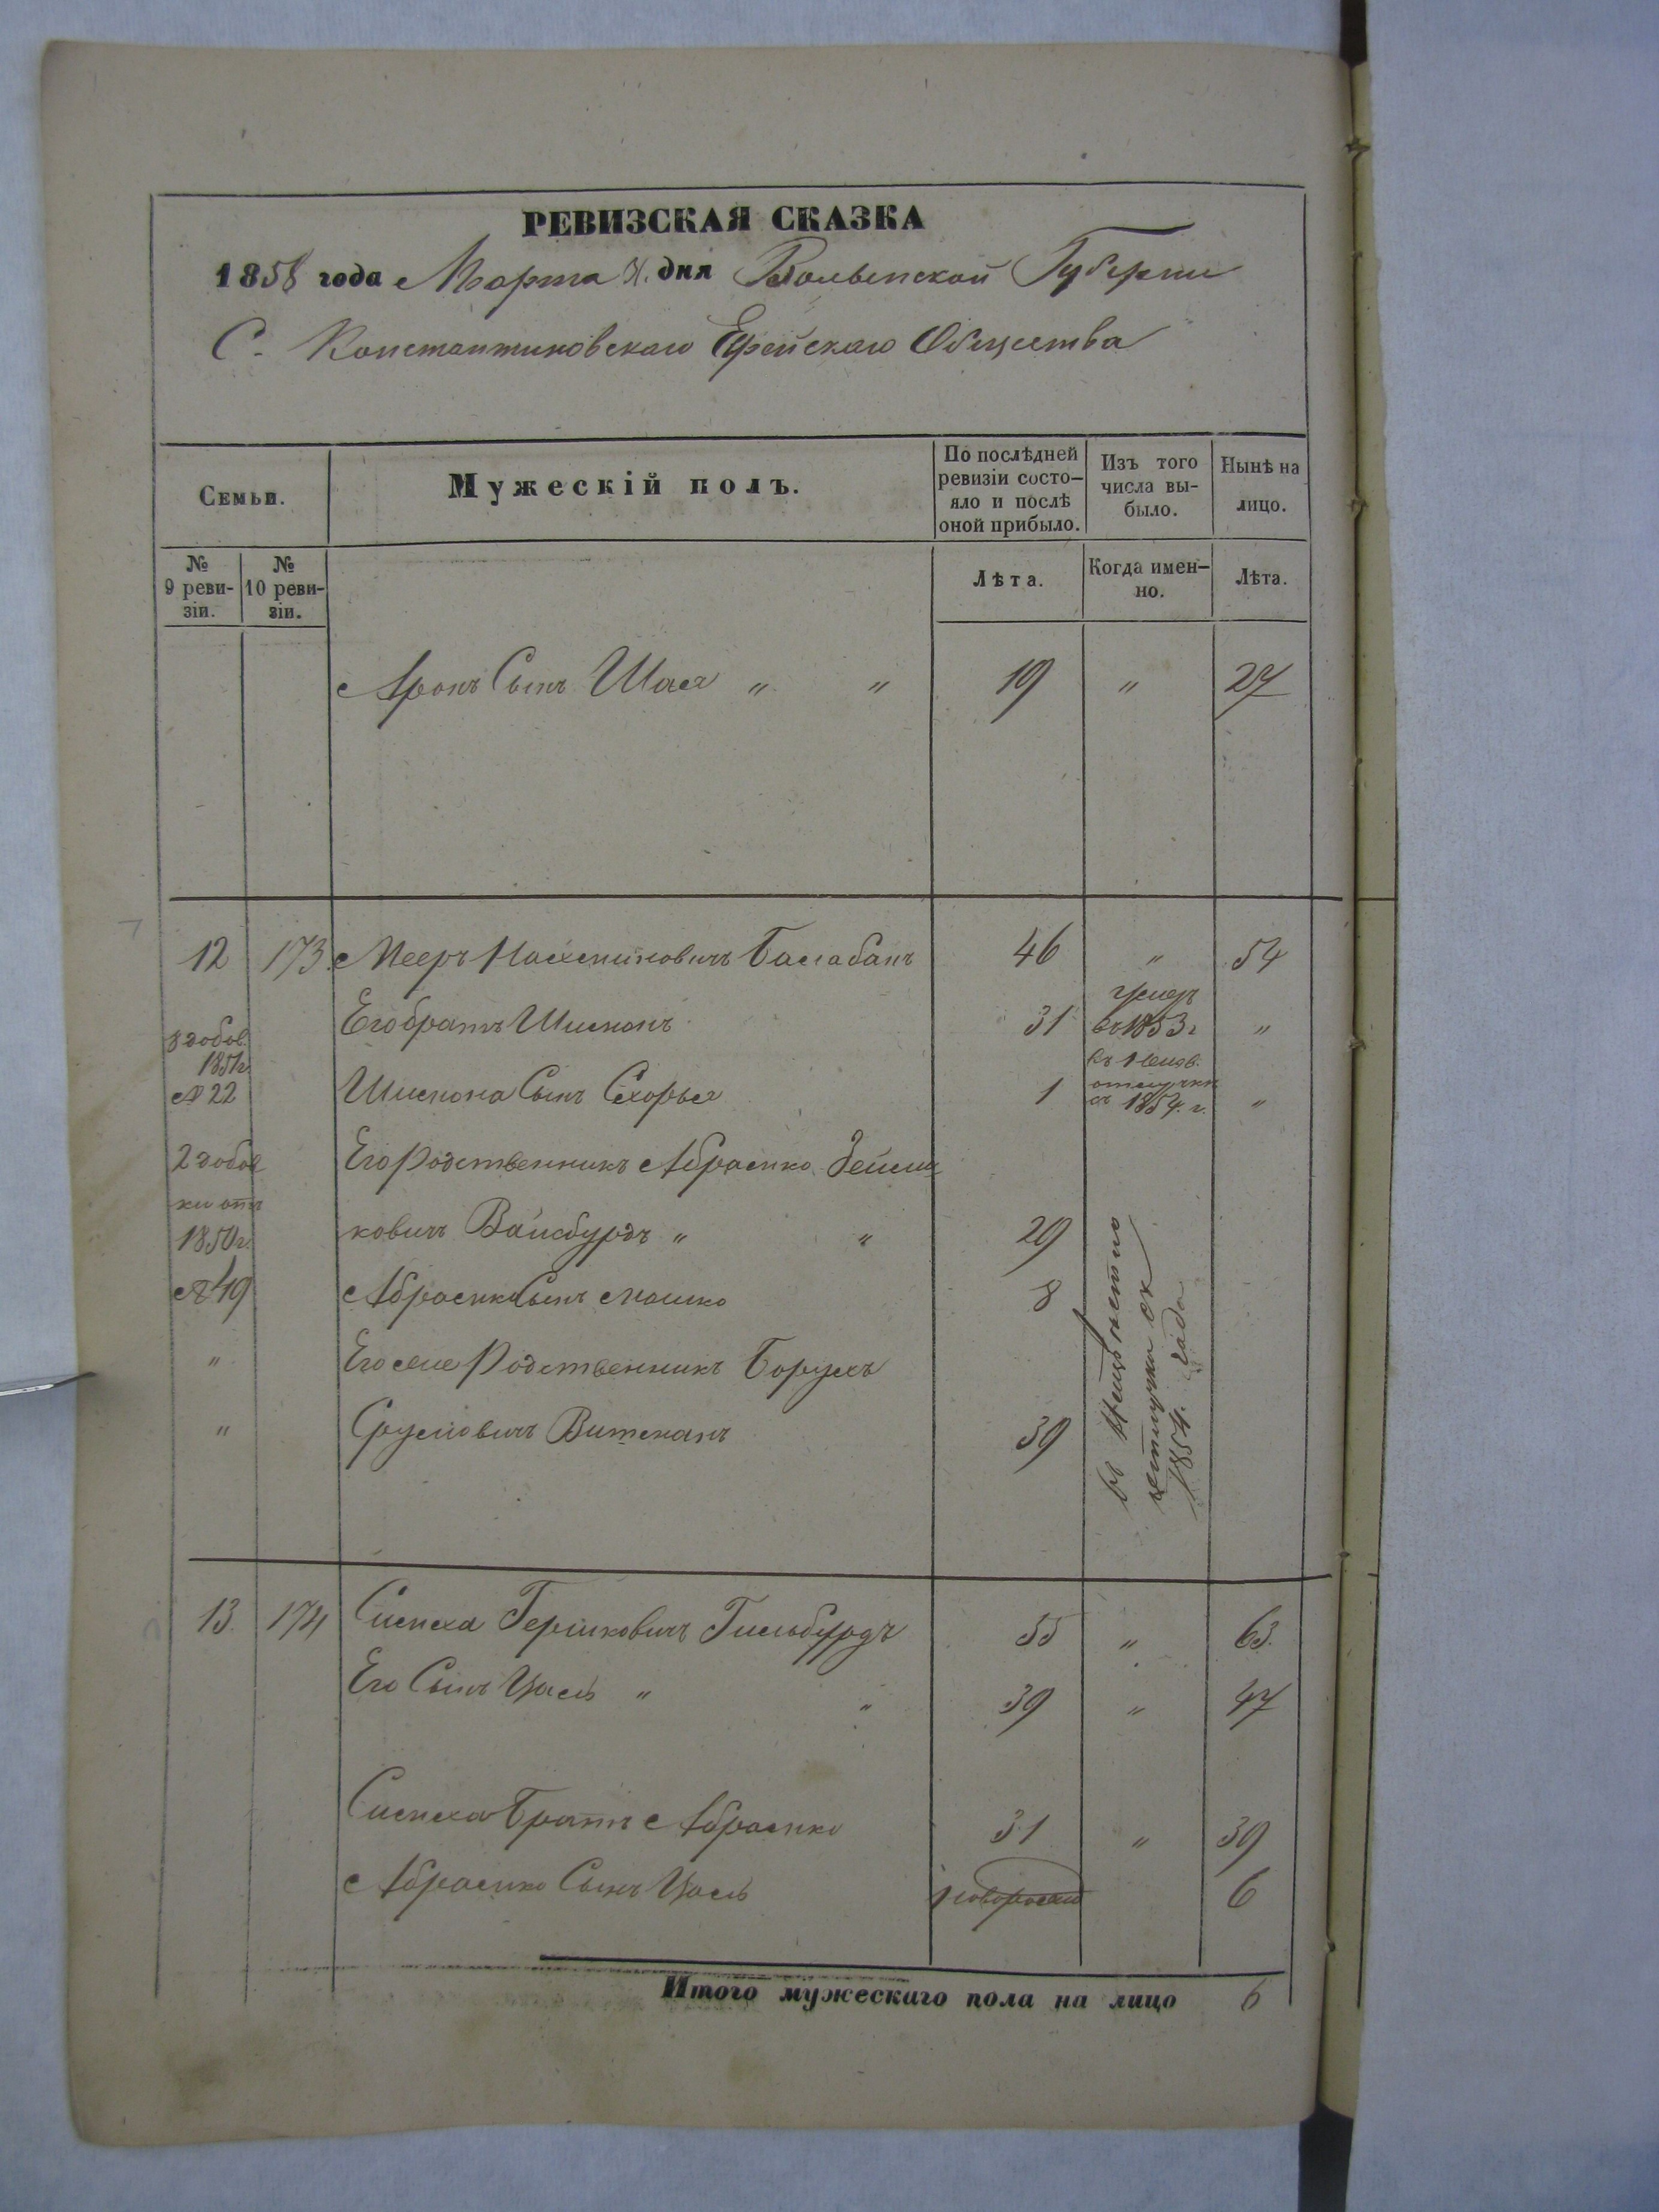 РЕВИЗСКАЯ СКАЗКА
1858 года Марта дня Волынской Губернии
С. Константиновскаго Еврейскаго Общества
Семьи.
Мужескій полъ.
По послѣдней ревизіи состо-
яло и послѣ оной прибыло.
Изъ того числа вы-
было.
Нынѣ на лицо.
№ 9 реви-
зіи.
№ 10 реви-
зіи.
Лѣта.
Когда имен-
но.
Лѣта.
Аронъ Сынъ Шаея " " 19 " 27
12 173. Мееръ Нахмановичъ Балабанъ 46 " 54
Его братъ Шимонъ 31 умеръ въ 1853 г "
1851г.
№ 22
Шимона Сынъ Схорья 1 въ неизв. отлучкѣ съ 1854. г. "
2 добов
ки отъ
1850г.
№ 49
Его Родственникъ Абрамко Зейли
ковичъ Вайсбурдъ " " 29
Абрамка Сынъ Мошко 8
" Его же Родственникъ Борухъ
" Срулевичъ Витманъ 39
въ неизвѣстно
отлучки съ
1854. года
13. 174 Симха Гершковичъ Гильбурдъ 55 " 63.
Его Сынъ Иось " " 39 " 47
Симха Братъ Абрамко 31 " 39
Абрамко Сынъ Иось 6
Итого мужескаго пола на лицо 6